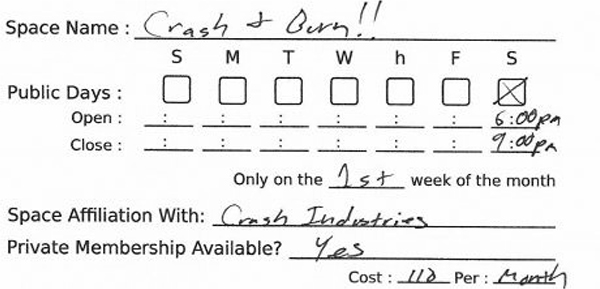 Space Name : Crash & Burn!!
S M T W h F S
Public Days : ☐ ☐ ☐ ☐ ☐ ☐ ☒
Open : : : : : : : 6:00pm
Close : : : : : : : 9:00pm
Only on the 1st week of the month
Space Affiliation With: Crash Industries
Private Membership Available? Yes
Cost : 110 Per : Month